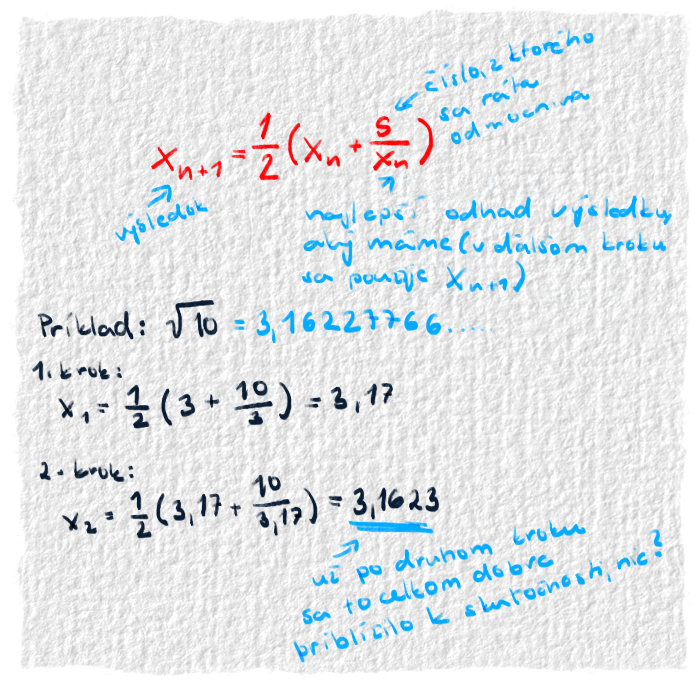 číslo, z ktorého
sa ráta
odmocnina
x_{n+1} = \frac{1}{2} (x_n + \frac{S}{x_n})
výsledok
najlepší odhad výsledku,
aký máme (v ďalšom kroku
sa použije x_{n+1})
Príklad: √10 = 3,16227766.....
1. krok:
x_1 = \frac{1}{2} (3 + \frac{10}{3}) = 3,17
2. krok:
x_2 = \frac{1}{2} (3,17 + \frac{10}{3,17}) = 3,1623
už po druhom kroku
sa to celkom dobre
priblížilo k skutočnosti, nie?